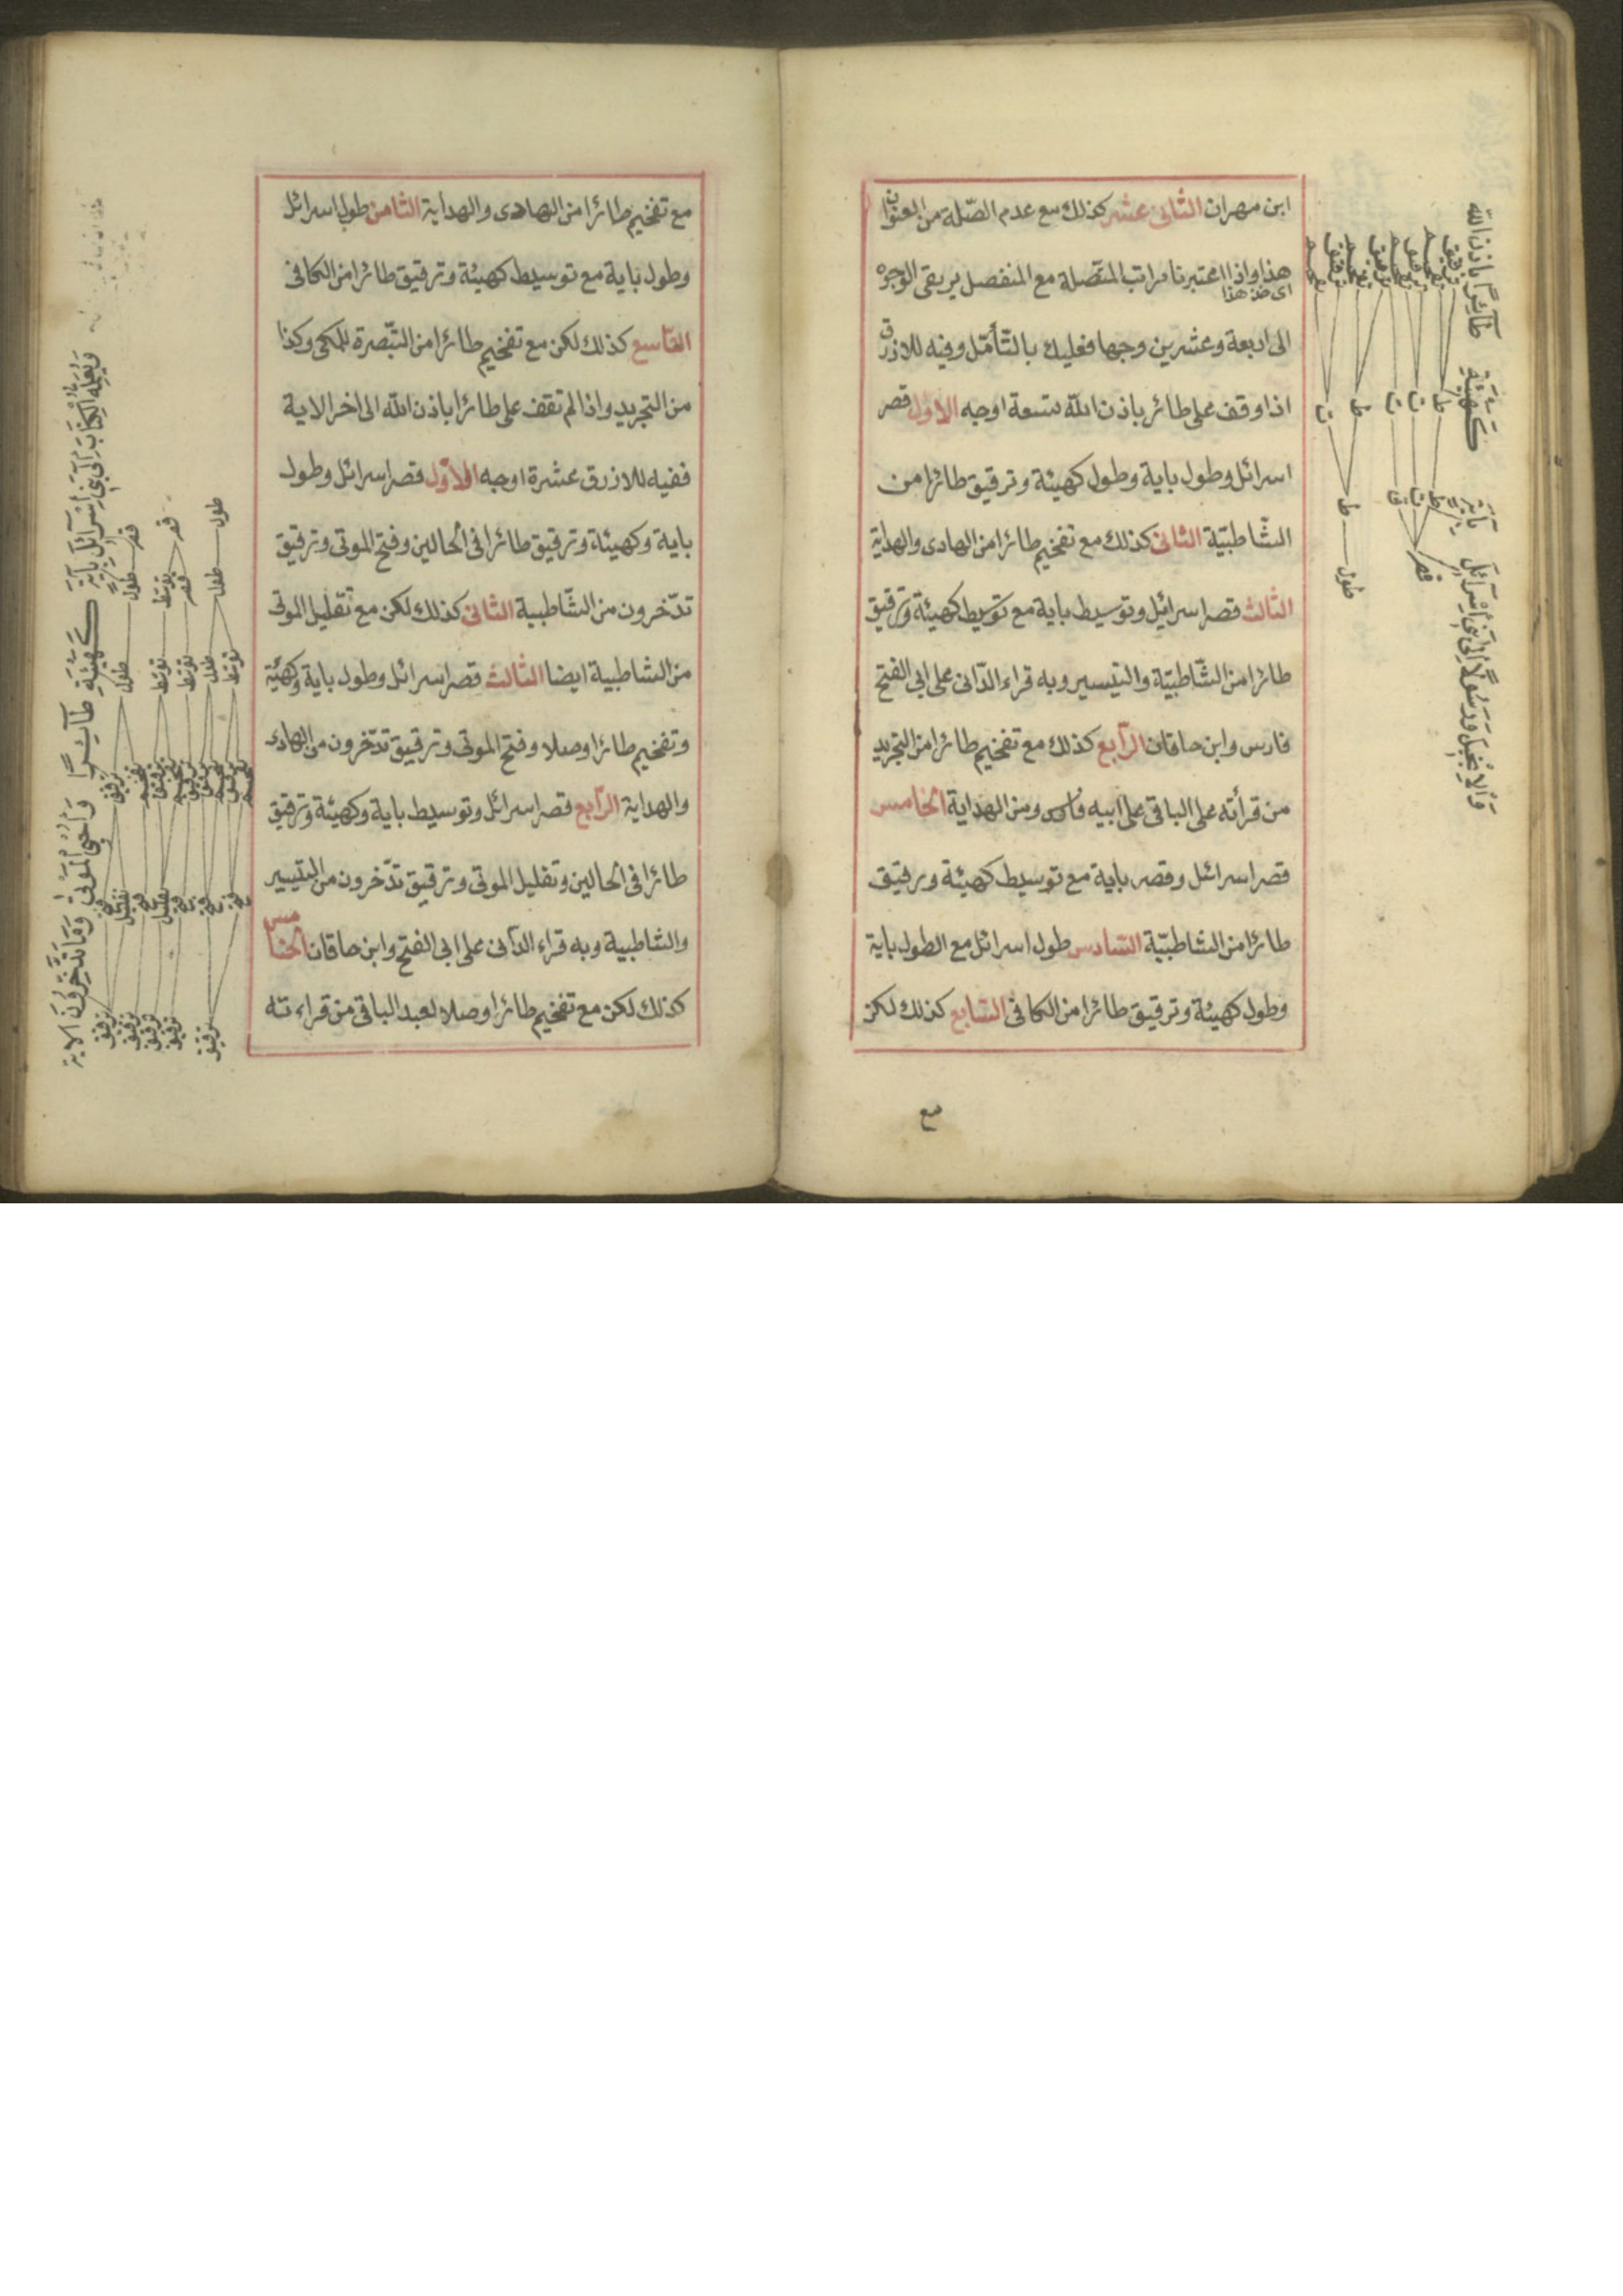 ابن مهران الثانى عشر كذلك مع عدم الصّلة من العنوان
هذا واذا اعتبرنا مراتب المتّصلة مع المنفصل يريقى الوجوه
اى ضد هذا
الى اربعة وعشرين وجها فعليك بالتّأمّل وفيه للازرق
اذا وقف على طائر باذن الله تسعة اوجه الاوّل قصر
اسرائل وطول باية وطول كهيئة وترقيق طائرا من
الشّاطبيّة الثانى كذلك مع تفخيم طائرا من الهادى والهداية
الثالث قصر اسرائيل وتوسيط باية مع توسيط كهيئة وترقيق
طائرا من الشّاطبيّة والتيسير وبه قراء الدّانى على ابى الفتح
فارس وابن خاقان الرّابع كذلك مع تفخيم طائرا من التجريد
من قرأته على الباقى على ابيه فارس ومن الهداية الخامس
قصر اسرائل وقصر باية مع توسيط كهيئة وترقيق
طائرا من الشاطبيّة السّادس طول اسرائل مع الطول باية
وطول كهيئة وترقيق طائرا من الكافى السّابع كذلك لكن
مع
وَالْاِنْجِيلَ وَرَسُولًا اِلٰى بَنِى اِسْرَائِلَ بِاٰيَةٍ كَهَيْئَةِ طَائِرًا بِاِذْنِ اللهِ
مع تفخيم طائرا من الهادى والهداية الثامن طول اسرائل
وطول باية مع توسيط كهيئة وترقيق طائرا من الكافى
التاسع كذلك لكن مع تفخيم طائرا من التّبصرة للمكى وكذا
من التجريد واذا لم تقف على طائرا باذن الله الى اخر الاية
ففيه للازرق عشرة اوجه الاوّل قصر اسرائل وطول
باية وكهيئة وترقيق طائرا فى الحالين وفتح الموتى وترقيق
تدّخرون من الشّاطبية الثانى كذلك لكن مع تقليل الموتى
من الشاطبية ايضا الثالث قصر اسرائل وطول باية وكهيئة
وتفخيم طائرا وصلا وفتح الموتى وترقيق تدّخرون من الهادى
والهداية الرّابع قصر اسرائل وتوسيط باية وكهيئة وترقيق
طائرا فى الحالين وتقليل الموتى وترقيق تدّخرون من التيسير
والشاطبية وبه قراء الدّانى على ابى الفتح وابن خاقان الخامس
كذلك لكن مع تفخيم طائرا وصلا لعبد الباقى من قراءته
وَيُعَلِّمُهُ الْكِتَابَ اِلٰى بَنِى اِسْرَائِلَ بِاٰيَةٍ كَهَيْئَةِ طَائِرًا وَاُحْيِى الْمَوْتٰى وَمَا تَدَّخِرُونَ الاية